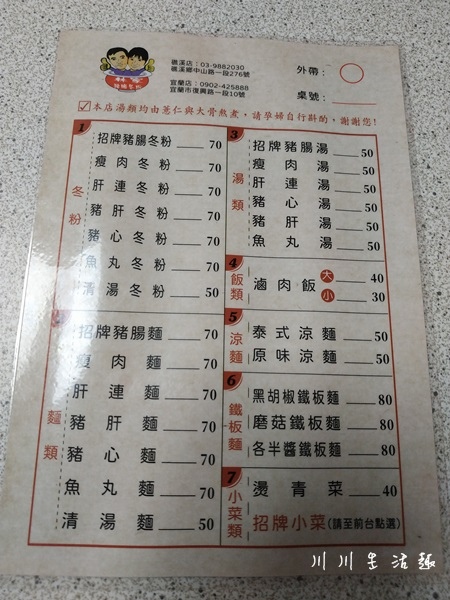 礁溪店：03-9882030
礁溪鄉中山路一段276號
宜蘭店：0902-425888
宜蘭市復興路一段10號
外帶：
桌號：
本店湯類均由薏仁與大骨熬煮，請孕婦自行斟酌，謝謝您！
1
冬粉
招牌豬腸冬粉 70
瘦肉冬粉 70
肝連冬粉 70
豬肝冬粉 70
豬心冬粉 70
魚丸冬粉 70
清湯冬粉 50
麵類
招牌豬腸麵 70
瘦肉麵 70
肝連麵 70
豬肝麵 70
豬心麵 70
魚丸麵 70
清湯麵 50
3
湯類
招牌豬腸湯 50
瘦肉湯 50
肝連湯 50
豬心湯 50
豬肝湯 50
魚丸湯 50
4
飯類
滷肉飯 大 40
小 30
5
涼麵
泰式涼麵 50
原味涼麵 50
6
鐵板麵
黑胡椒鐵板麵 80
磨菇鐵板麵 80
各半醬鐵板麵 80
7
小菜類
燙青菜 40
招牌小菜(請至前台點選)
川川生活趣